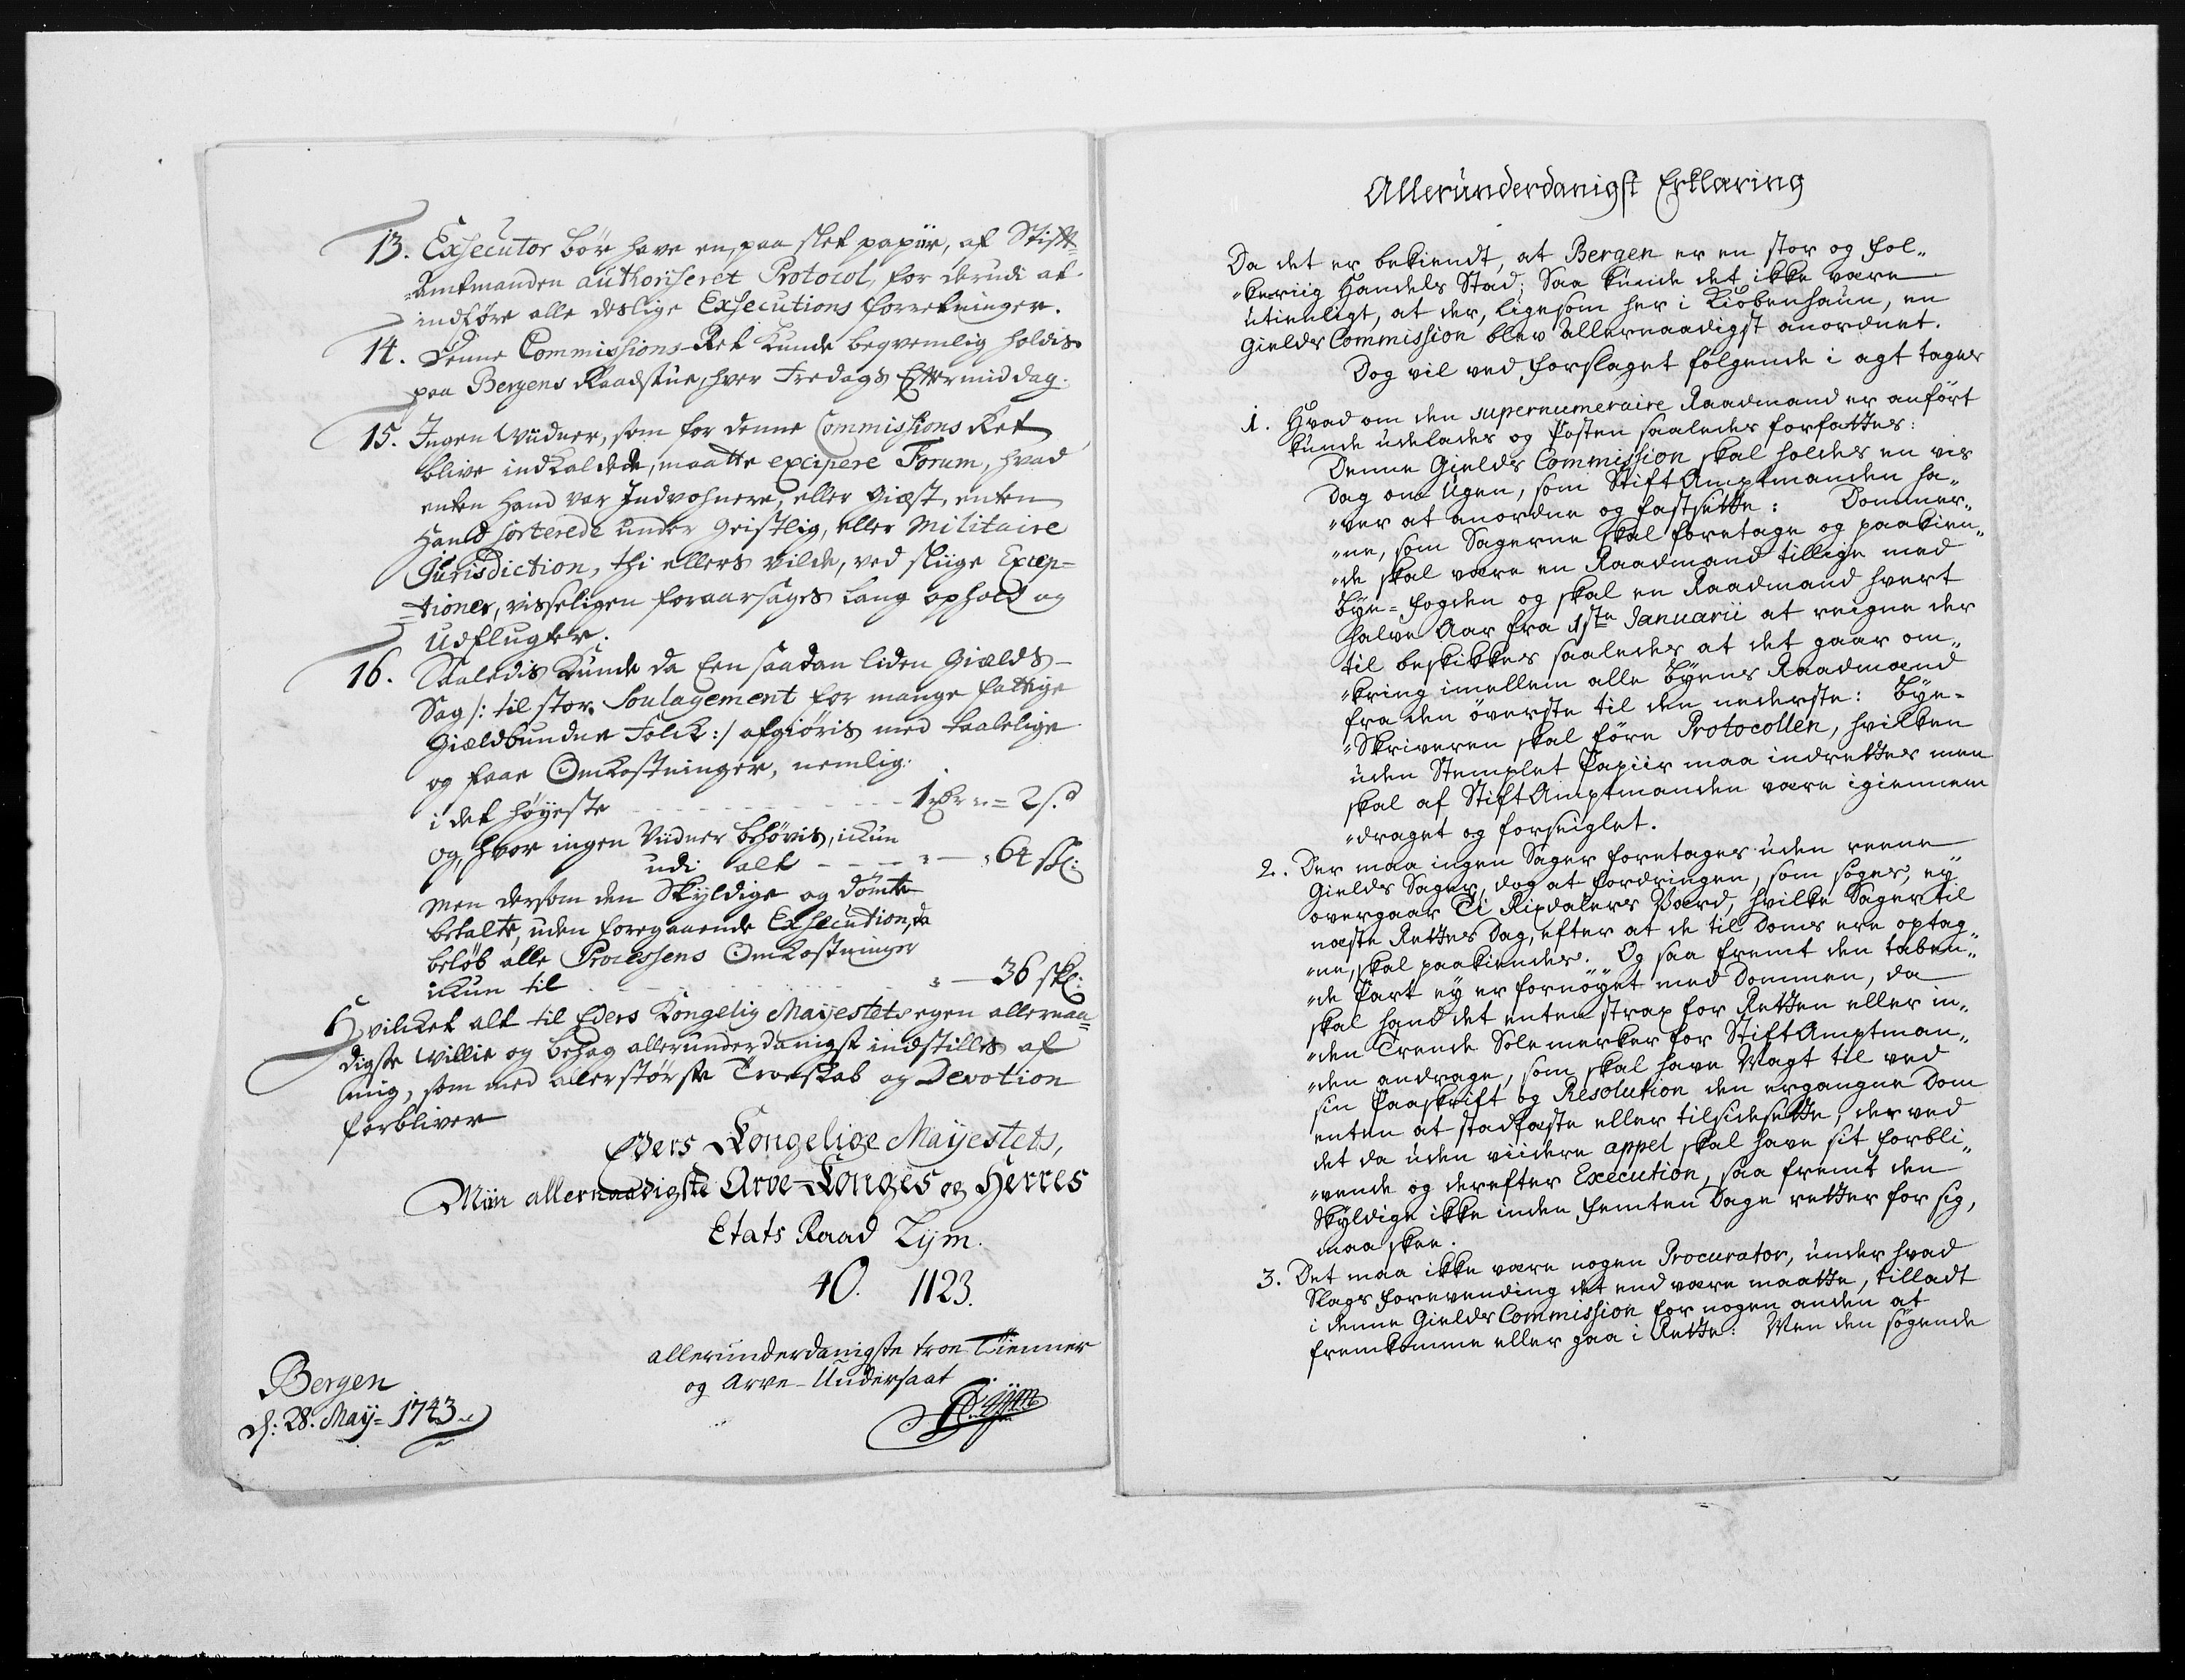 13. Exsecutor bör have en, paa slet papiir, af Stift-
=Amtmanden authoriseret Protocol, for derudi at
indföre alle deslige Exsecutions forretninger.
14. Denne Commissions-Ret kunde beqvemlig holdis
paa Bergens Raadstue, hver Fredags Eftermiddag.
15. Ingen Viidner, som for denne Commissions Ret
blive indkaldede, maatte excipere Forum, hvad
enten Hand var Indvohnere, eller Giæst, enten
Hand sorterede under Geistlig, eller Militaire
Jurisdiction, thi ellers vilde, ved sliige Excep=
=tioner, visseligen foraarsages lang ophold og
Udflugter.
16. Saaledis kunde da Een saadan liden Giælds-
Sag /: til stor Soulagement for mange fattige
Giældbundne Folck :/ afgiöris med taalelige
og faae Omkostninger, nemlig:
i det höyeste - - - - - - - 1 rdr = 2 s.
og, hvor ingen Viidner behövis, ickun
udi alt - - - - " - " 64 skl:
Men dersom den Skyldige og dömte
betalte, uden foregaaende Exsecution, da
belöb alle Processens Omkostninger
ickun til - - - - - " - 36 skl:
Hvilcket alt til Eders Kongelig Mayestets egen allernaa=
digste Willie og behag allerunderdanigst indstilles af
mig, som med allerstörste Troeskab og Devotion
forbliver
Eders Kongelige Mayestets,
Miin allernaadigste Arve-Konges og Herres
Etats Raad Lÿm.
40. 1123.
allerunderdanigste troe Tienner
og Arve-Undersaat
Bergen
d: 28. Maÿ= 1743.
Allerunderdanigst Erklæring
Da det er bekiendt, at Bergen er en stor og fol„
„keriig Handels Stad; Saa kunde det ikke være
utienligt, at der, ligesom her i Kiöbenhaun, en
Gields Commission blev Allernaadigst anordnet.
Dog vil ved forslaget fölgende i agt tages
1. Hvad om den supernumeraire Raadmand er anfört
kunde udelades og Posten saaledes forfattes:
Denne Gields Commission skal holdes en vis
Dag om Ugen, som StiftAmptmanden ha„
„ver at anordne og fastsette: Dommer„
„ne, som Sagerne skal foretage og paakien„
„de skal være en Raadmand tillige med
Bye=fogden og skal en Raadmand hvert
halve Aar fra 1ste Januarii at reigne der
til beskikkes saaledes at det gaar om„
„kring imellem alle Byens Raadmænd
fra den överste til den nederste: Bye=
„Skriveren skal före Protocollen, hvilken
uden Stemplet Papiir maa indrettes men
skal af StiftAmptmanden være igiennem
„draget og forseiglet.
2. Der maa ingen Sager foretages uden reene
Gields Sager, dog at fordringen, som söges, eÿ
overgaar Ti Rixdalers Værd, hvilke Sager til
næste Rettes Dag, efter at de til Doms ere optag„
„ne, skal paakiendes. Og saa fremt den taben„
„de Part eÿ er fornöyet med Dommen, da
skal hand det enten strax for Retten eller in„
„den Trende Solemerker for StiftAmptman„
„den andrage, som skal have Magt til ved
sin Paaskrift og Resolution den ergangne Dom
enten at stadfæste eller tilsidesette, der ved
det da uden viidere appel skal have sit forbli„
„vende og derefter Execution, saa fremt den
Skyldige ikke inden femten Dage retter for sig,
maa skee.
3. Det maa ikke være nogen Procurator, under hvad
Slags forevending det end være maatte, tilladt
i denne Gields Commission for nogen anden at
fremkomme eller gaa i Rette: Men den sögende